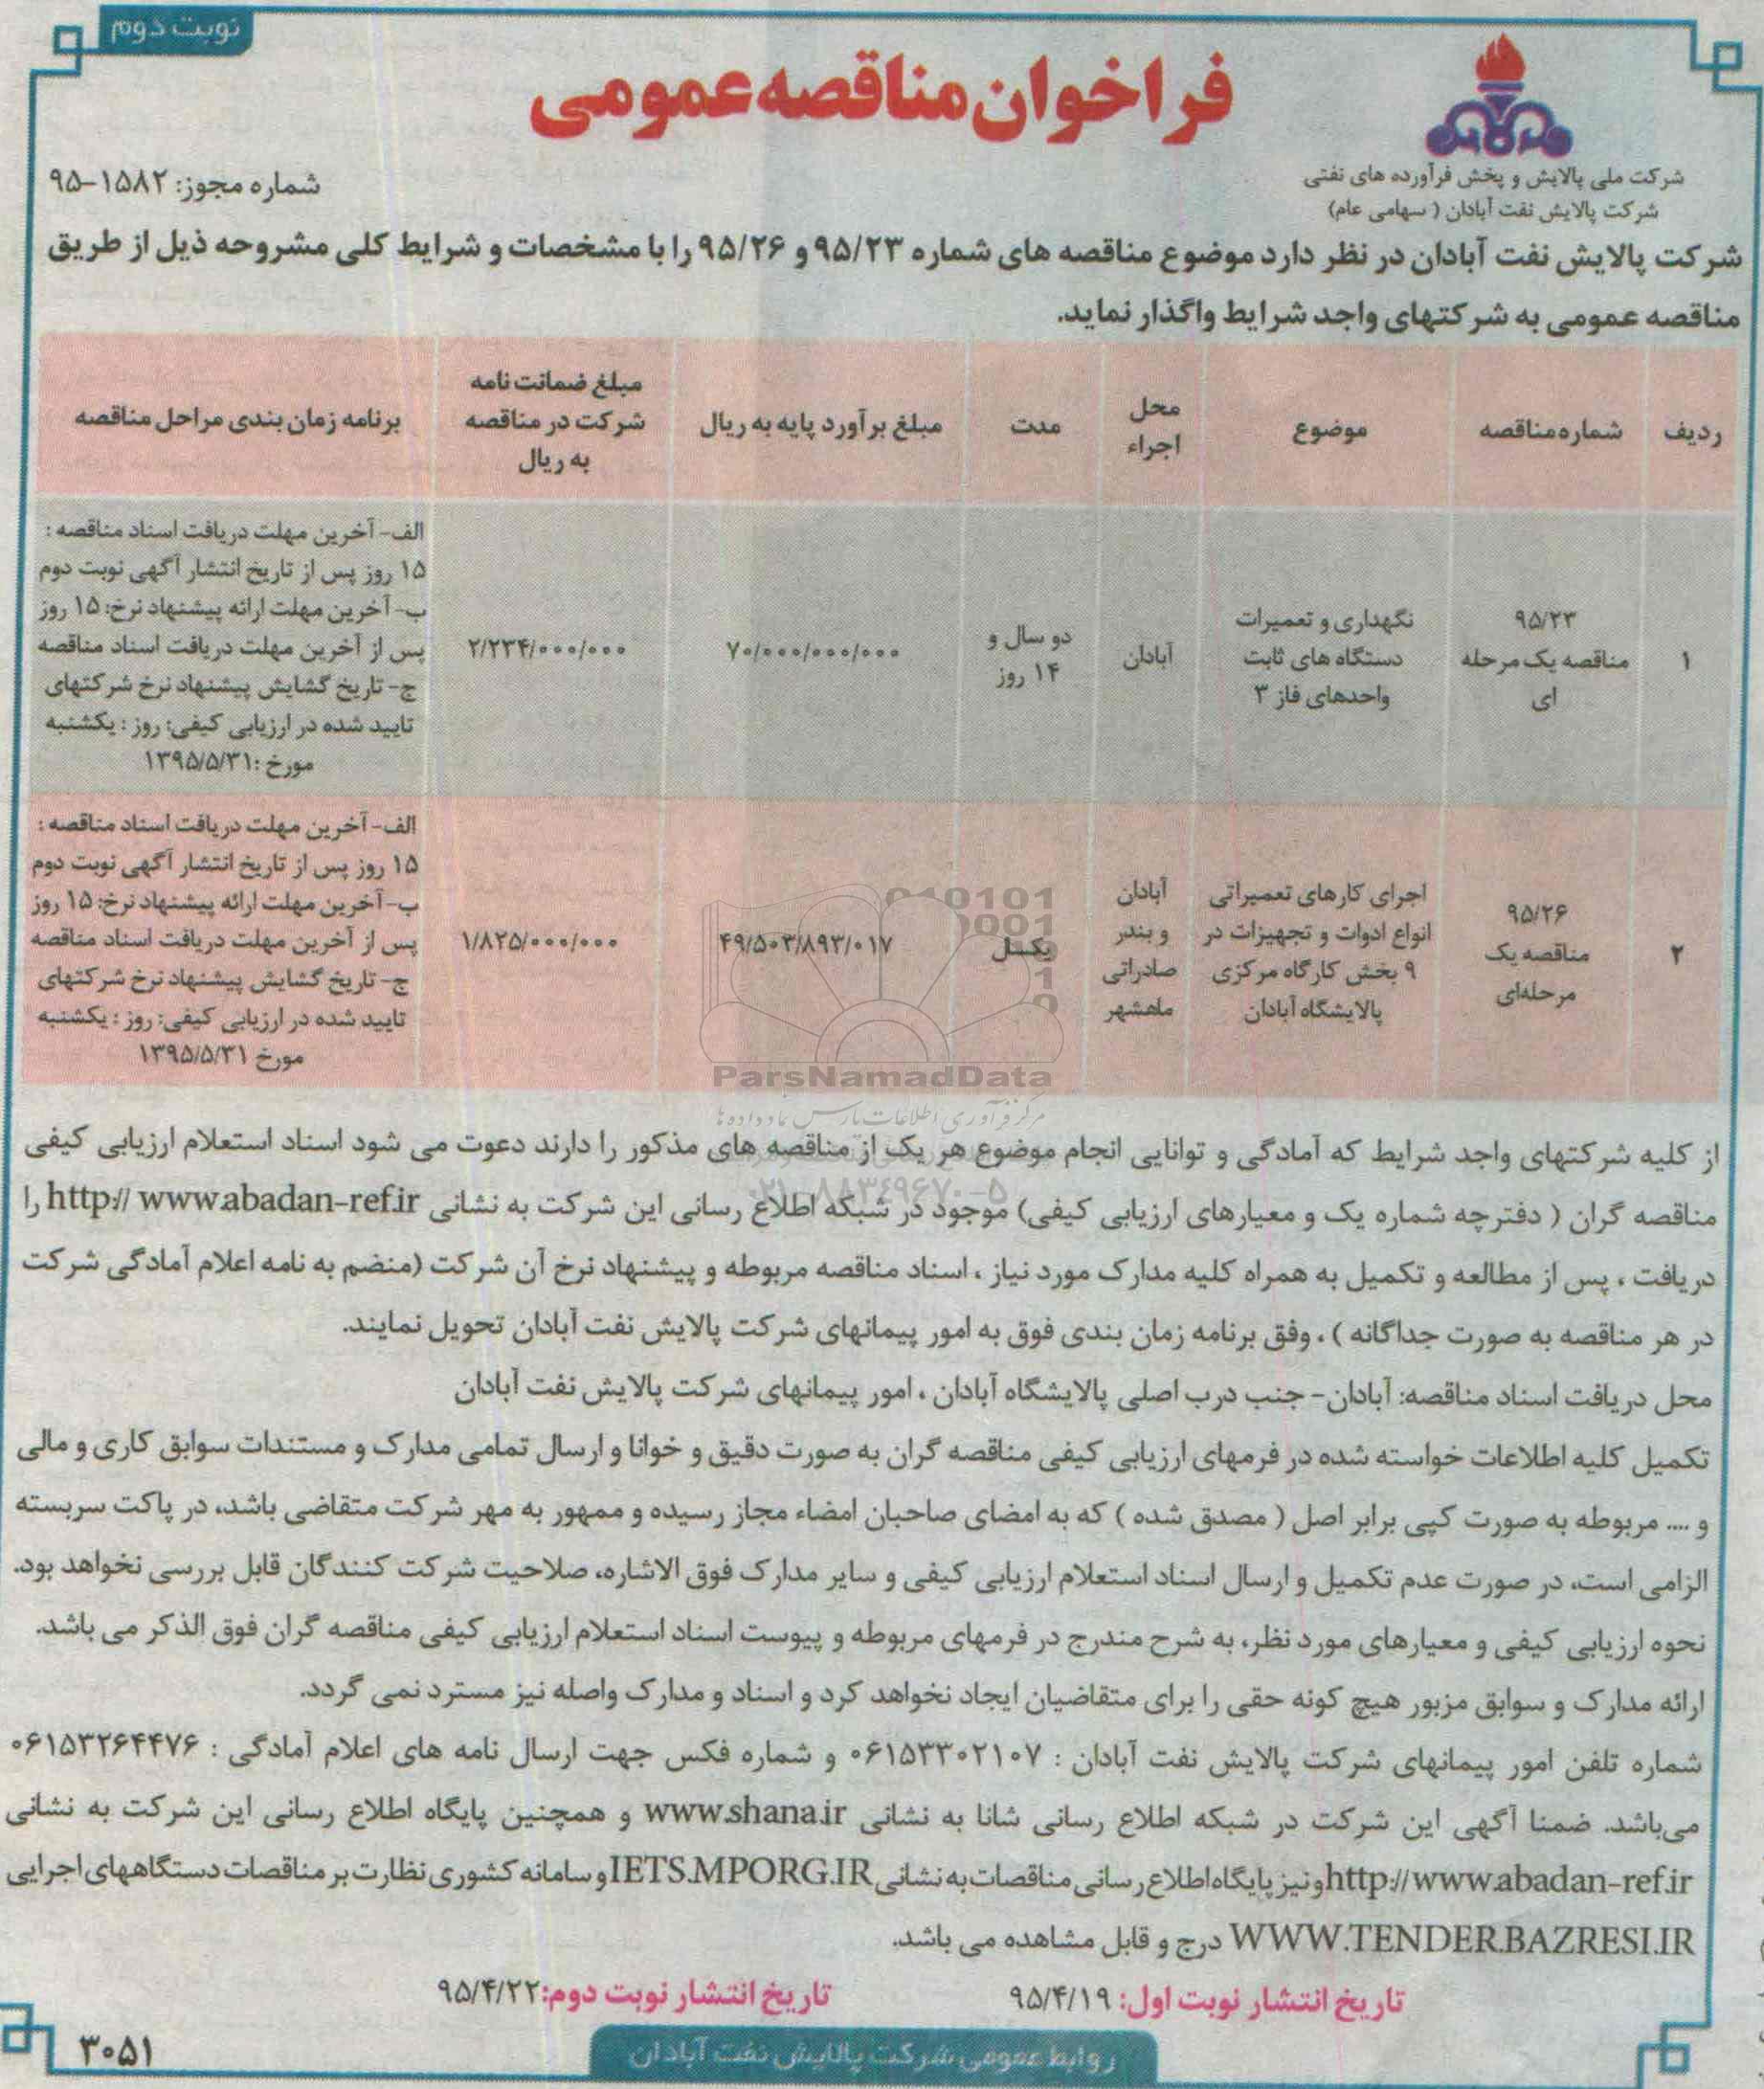 نوبت دوم
فراخوان مناقصه عمومی
شرکت ملی پالایش و پخش فرآورده های نفتی
شرکت پالایش نفت آبادان ( سهامی عام)
شماره مجوز: ۱۵۸۲-۹۵
شرکت پالایش نفت آبادان در نظر دارد موضوع مناقصه های شماره ۹۵/۲۳ و ۹۵/۲۶ را با مشخصات و شرایط کلی مشروحه ذیل از طریق
مناقصه عمومی به شرکتهای واجد شرایط واگذار نماید.
ردیف
شماره مناقصه
موضوع
محل
اجراء
مدت
مبلغ برآورد پایه به ریال
مبلغ ضمانت نامه
شرکت در مناقصه
به ریال
برنامه زمان بندی مراحل مناقصه
۱
۹۵/۲۳
مناقصه یک مرحله
ای
نگهداری و تعمیرات
دستگاه های ثابت
واحدهای فاز ۳
آبادان
دو سال و
۱۴ روز
۷۰/۰۰۰/۰۰۰/۰۰۰
۲/۲۳۴/۰۰۰/۰۰۰
الف- آخرین مهلت دریافت اسناد مناقصه :
۱۵ روز پس از تاریخ انتشار آگهی نوبت دوم
ب- آخرین مهلت ارائه پیشنهاد نرخ: ۱۵ روز
پس از آخرین مهلت دریافت اسناد مناقصه
ج- تاریخ گشایش پیشنهاد نرخ شرکتهای
تایید شده در ارزیابی کیفی: روز : یکشنبه
مورخ :۱۳۹۵/۵/۳۱
۲
۹۵/۲۶
مناقصه یک
مرحله‌ای
اجرای کارهای تعمیراتی
انواع ادوات و تجهیزات در
۹ بخش کارگاه مرکزی
پالایشگاه آبادان
آبادان
و بندر
صادراتی
ماهشهر
یکسال
۴۹/۵۰۳/۸۹۳/۰۱۷
۱/۸۲۵/۰۰۰/۰۰۰
الف- آخرین مهلت دریافت اسناد مناقصه :
۱۵ روز پس از تاریخ انتشار آگهی نوبت دوم
ب- آخرین مهلت ارائه پیشنهاد نرخ: ۱۵ روز
پس از آخرین مهلت دریافت اسناد مناقصه
ج- تاریخ گشایش پیشنهاد نرخ شرکتهای
تایید شده در ارزیابی کیفی: روز : یکشنبه
مورخ ۱۳۹۵/۵/۳۱
ParsNamadData
مرکز فرآوری اطلاعات پارس نماد داده ها
۰۲۱-۸۸۳۴۹۶۷۰-۵
از کلیه شرکتهای واجد شرایط که آمادگی و توانایی انجام موضوع هر یک از مناقصه های مذکور را دارند دعوت می شود اسناد استعلام ارزیابی کیفی
مناقصه گران ( دفترچه شماره یک و معیارهای ارزیابی کیفی) موجود در شبکه اطلاع رسانی این شرکت به نشانی http:// www.abadan-ref.ir را
دریافت ، پس از مطالعه و تکمیل به همراه کلیه مدارک مورد نیاز ، اسناد مناقصه مربوطه و پیشنهاد نرخ آن شرکت (منضم به نامه اعلام آمادگی شرکت
در هر مناقصه به صورت جداگانه ) ، وفق برنامه زمان بندی فوق به امور پیمانهای شرکت پالایش نفت آبادان تحویل نمایند.
محل دریافت اسناد مناقصه: آبادان- جنب درب اصلی پالایشگاه آبادان ، امور پیمانهای شرکت پالایش نفت آبادان
تکمیل کلیه اطلاعات خواسته شده در فرمهای ارزیابی کیفی مناقصه گران به صورت دقیق و خوانا و ارسال تمامی مدارک و مستندات سوابق کاری و مالی
و .... مربوطه به صورت کپی برابر اصل ( مصدق شده ) که به امضای صاحبان امضاء مجاز رسیده و ممهور به مهر شرکت متقاضی باشد، در پاکت سربسته
الزامی است، در صورت عدم تکمیل و ارسال اسناد استعلام ارزیابی کیفی و سایر مدارک فوق الاشاره، صلاحیت شرکت کنندگان قابل بررسی نخواهد بود.
نحوه ارزیابی کیفی و معیارهای مورد نظر، به شرح مندرج در فرمهای مربوطه و پیوست اسناد استعلام ارزیابی کیفی مناقصه گران فوق الذکر می باشد.
ارائه مدارک و سوابق مزبور هیچ گونه حقی را برای متقاضیان ایجاد نخواهد کرد و اسناد و مدارک واصله نیز مسترد نمی گردد.
شماره تلفن امور پیمانهای شرکت پالایش نفت آبادان : ۰۶۱۵۳۳۰۲۱۰۷ و شماره فکس جهت ارسال نامه های اعلام آمادگی : ۰۶۱۵۳۲۶۴۴۷۶
می‌باشد. ضمنا آگهی این شرکت در شبکه اطلاع رسانی شانا به نشانی www.shana.ir و همچنین پایگاه اطلاع رسانی این شرکت به نشانی
http://www.abadan-ref.ir و نیز پایگاه اطلاع رسانی مناقصات به نشانی IETS.MPORG.IR و سامانه کشوری نظارت بر مناقصات دستگاههای اجرایی
WWW.TENDER.BAZRESI.IR درج و قابل مشاهده می باشد.
تاریخ انتشار نوبت اول: ۹۵/۴/۱۹
تاریخ انتشار نوبت دوم:۹۵/۴/۲۲
روابط عمومی شرکت پالایش نفت آبادان
۳۰۵۱